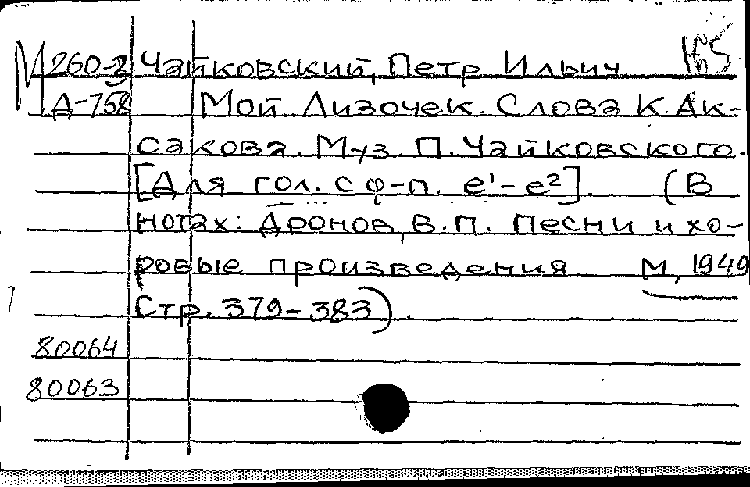 М 260-2 Чайковский, Петр Ильич 165
Д-758 Мой Лизочек. Слова К. Ак-
сакова. Муз. П. Чайковского.
[Для гол. с ф-п. e¹-e²]. (В
нотах: Дронов, В.П. Песни и хо-
ровые произведения М, 1949
Стр. 379-383).
80064
80063